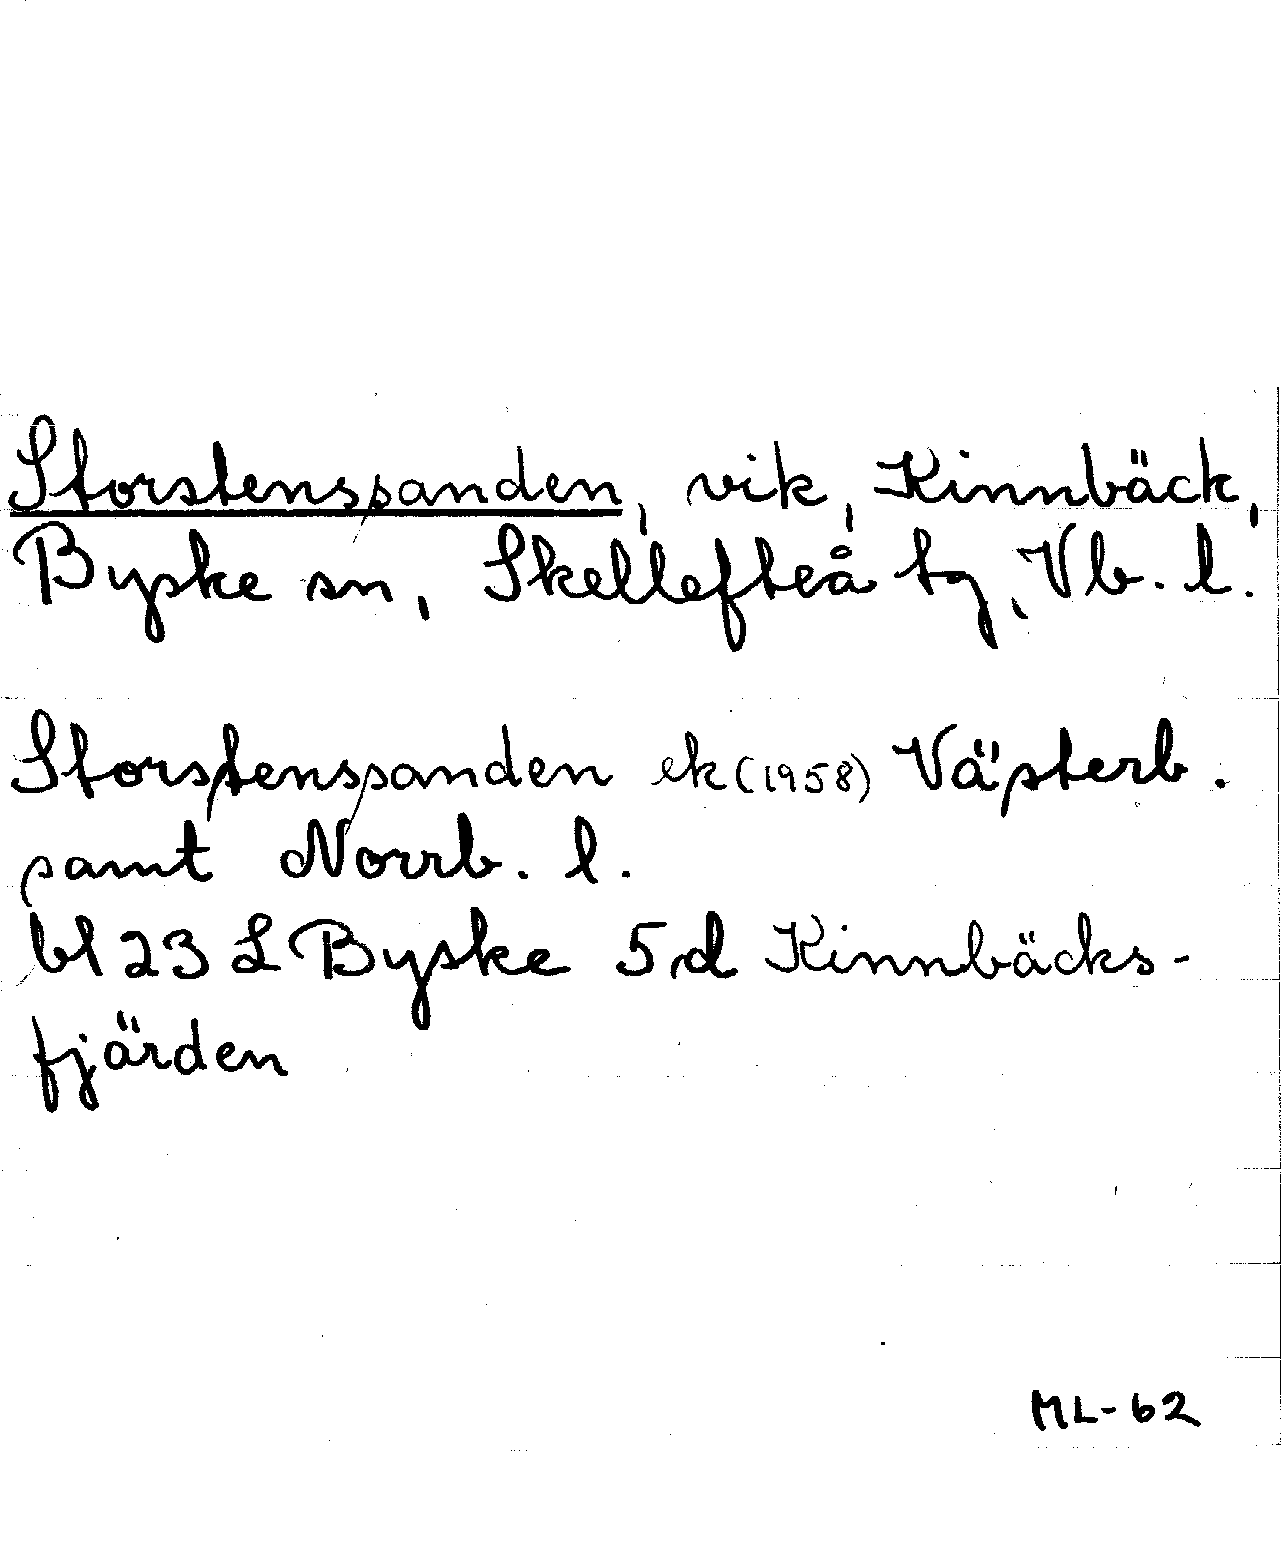 Storstenssanden, vik, Kinnbäck,
Byske sn, Skellefteå tg, Vb. l.
Storstenssanden ek (1958) Västerb.
samt Norrb. l.
bl 23 L Byske 5d Kinnbäcks-
fjärden
ML-62